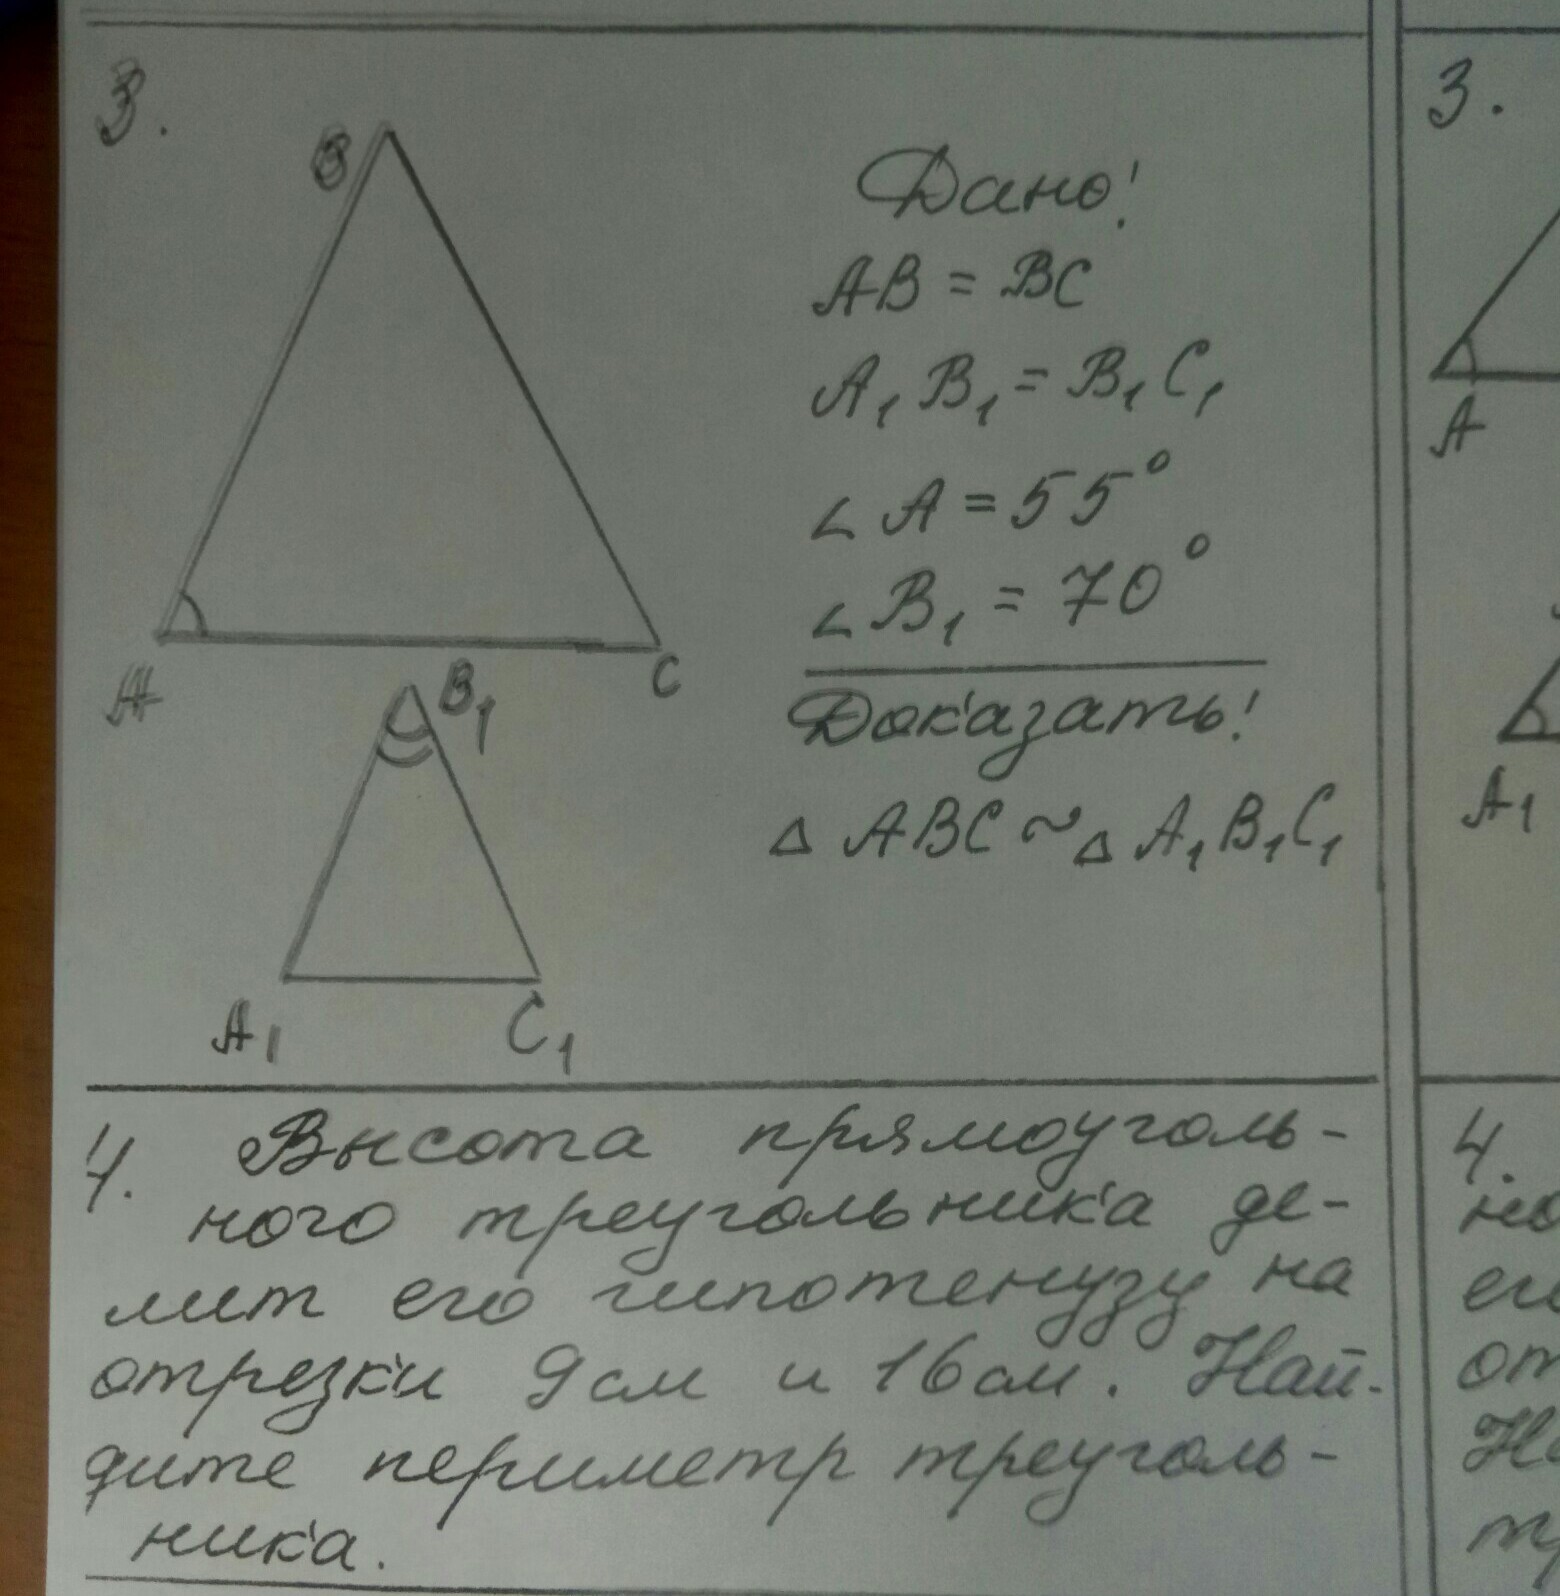 3.
B
A
C
B₁
A₁
C₁
Дано:
AB = BC
A₁B₁ = B₁C₁
∠A = 55°
∠B₁ = 70°
Доказать:
△ ABC ~ △ A₁B₁C₁
4. Высота прямоуголь-
ного треугольника де-
лит его гипотенузу на
отрезки 9см и 16см. Най-
дите периметр треуголь-
ника.
3.
A
A₁
4.
но
его
от
На
тр